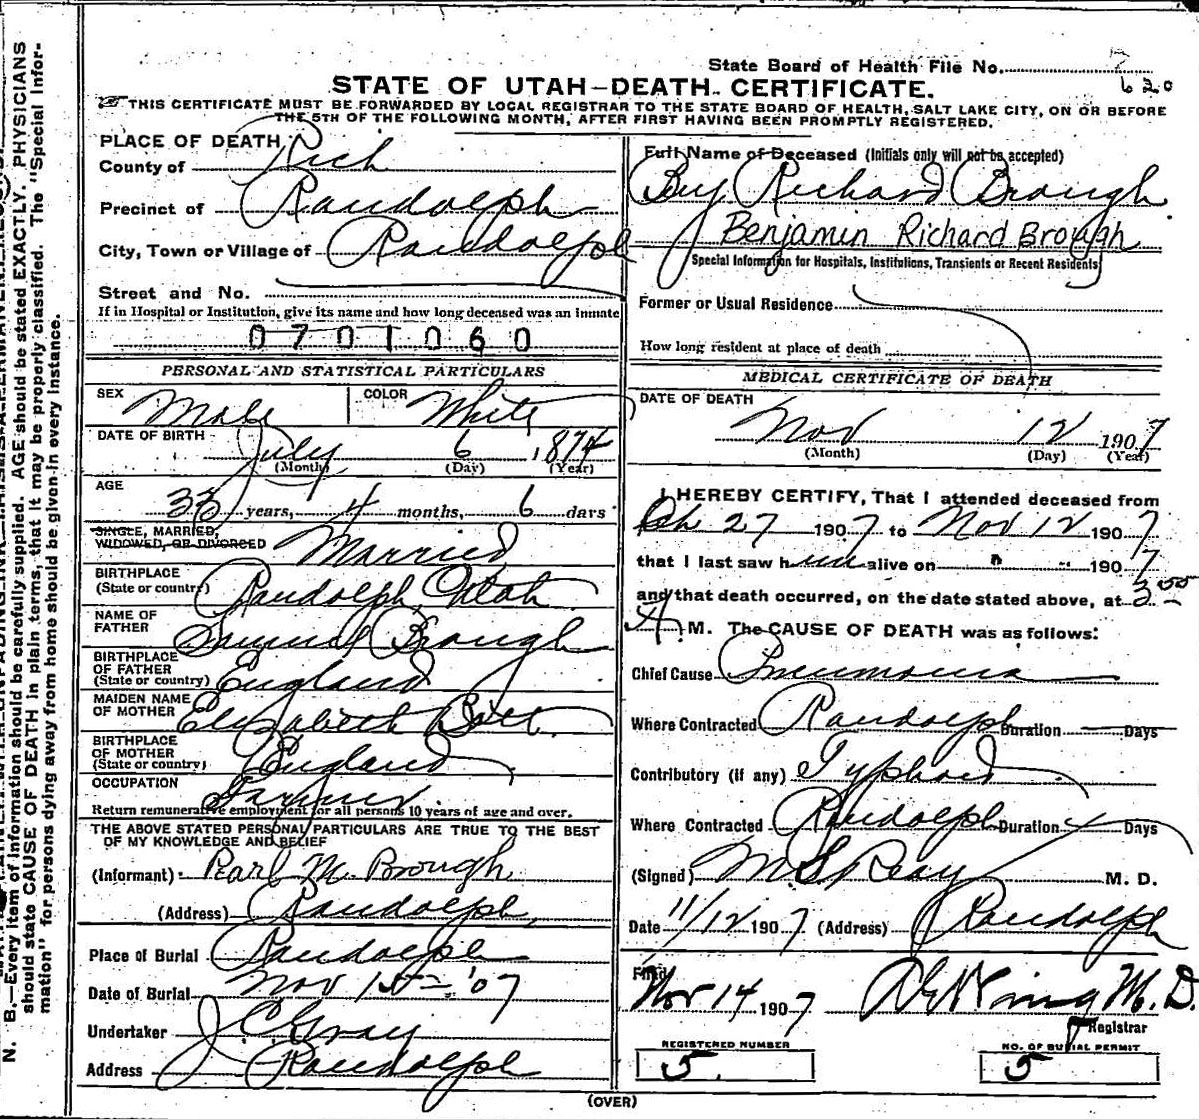 State Board of Health File No.
620
STATE OF UTAH—DEATH CERTIFICATE.
THIS CERTIFICATE MUST BE FORWARDED BY LOCAL REGISTRAR TO THE STATE BOARD OF HEALTH, SALT LAKE CITY, ON OR BEFORE
THE 5TH OF THE FOLLOWING MONTH, AFTER FIRST HAVING BEEN PROMPTLY REGISTERED.
PLACE OF DEATH
County of Rich
Precinct of Randolph
City, Town or Village of Randolph
Street and No.
If in Hospital or Institution, give its name and how long deceased was an inmate
0701060
PERSONAL AND STATISTICAL PARTICULARS
SEX Male COLOR White
DATE OF BIRTH July 6 1874
(Month) (Day) (Year)
AGE
33 years, 4 months, 6 days
SINGLE, MARRIED,
WIDOWED, OR DIVORCED Married
BIRTHPLACE
(State or country) Randolph Utah
NAME OF
FATHER Samuel Brough
BIRTHPLACE
OF FATHER
(State or country) England
MAIDEN NAME
OF MOTHER Elizabeth Bott
BIRTHPLACE
OF MOTHER
(State or country) England
OCCUPATION Farmer
Return remunerative employment for all persons 10 years of age and over.
THE ABOVE STATED PERSONAL PARTICULARS ARE TRUE TO THE BEST
OF MY KNOWLEDGE AND BELIEF
(Informant) Pearl M. Brough
(Address) Randolph,
Place of Burial Randolph
Date of Burial Nov 15 '07
Undertaker J C Gray
Address Randolph
Full Name of Deceased (Initials only will not be accepted)
Benj Richard Brough
Benjamin Richard Brough
Special Information for Hospitals, Institutions, Transients or Recent Residents
Former or Usual Residence
How long resident at place of death
MEDICAL CERTIFICATE OF DEATH
DATE OF DEATH
Nov 12 1907
(Month) (Day) (Year)
I HEREBY CERTIFY, That I attended deceased from
27 1907 to Nov 12 1907
that I last saw him alive on " " 1907
and that death occurred, on the date stated above, at 3:55
A. M. The CAUSE OF DEATH was as follows:
Chief Cause Pneumonia
Where Contracted Randolph Duration — Days
Contributory (if any) Typhoid
Where Contracted Randolph Duration Days
(Signed) M. S. Reay M. D.
Date 11/12 1907 (Address) Randolph
Filed
Nov 14 1907 M. D.
Registrar
REGISTERED NUMBER
5.
NO. OF BURIAL PERMIT
5
(OVER)
N. B.—Every item of information should be carefully supplied. AGE should be stated EXACTLY. PHYSICIANS
should state CAUSE OF DEATH in plain terms, that it may be properly classified. The "Special Infor-
mation" for persons dying away from home should be given in every instance.